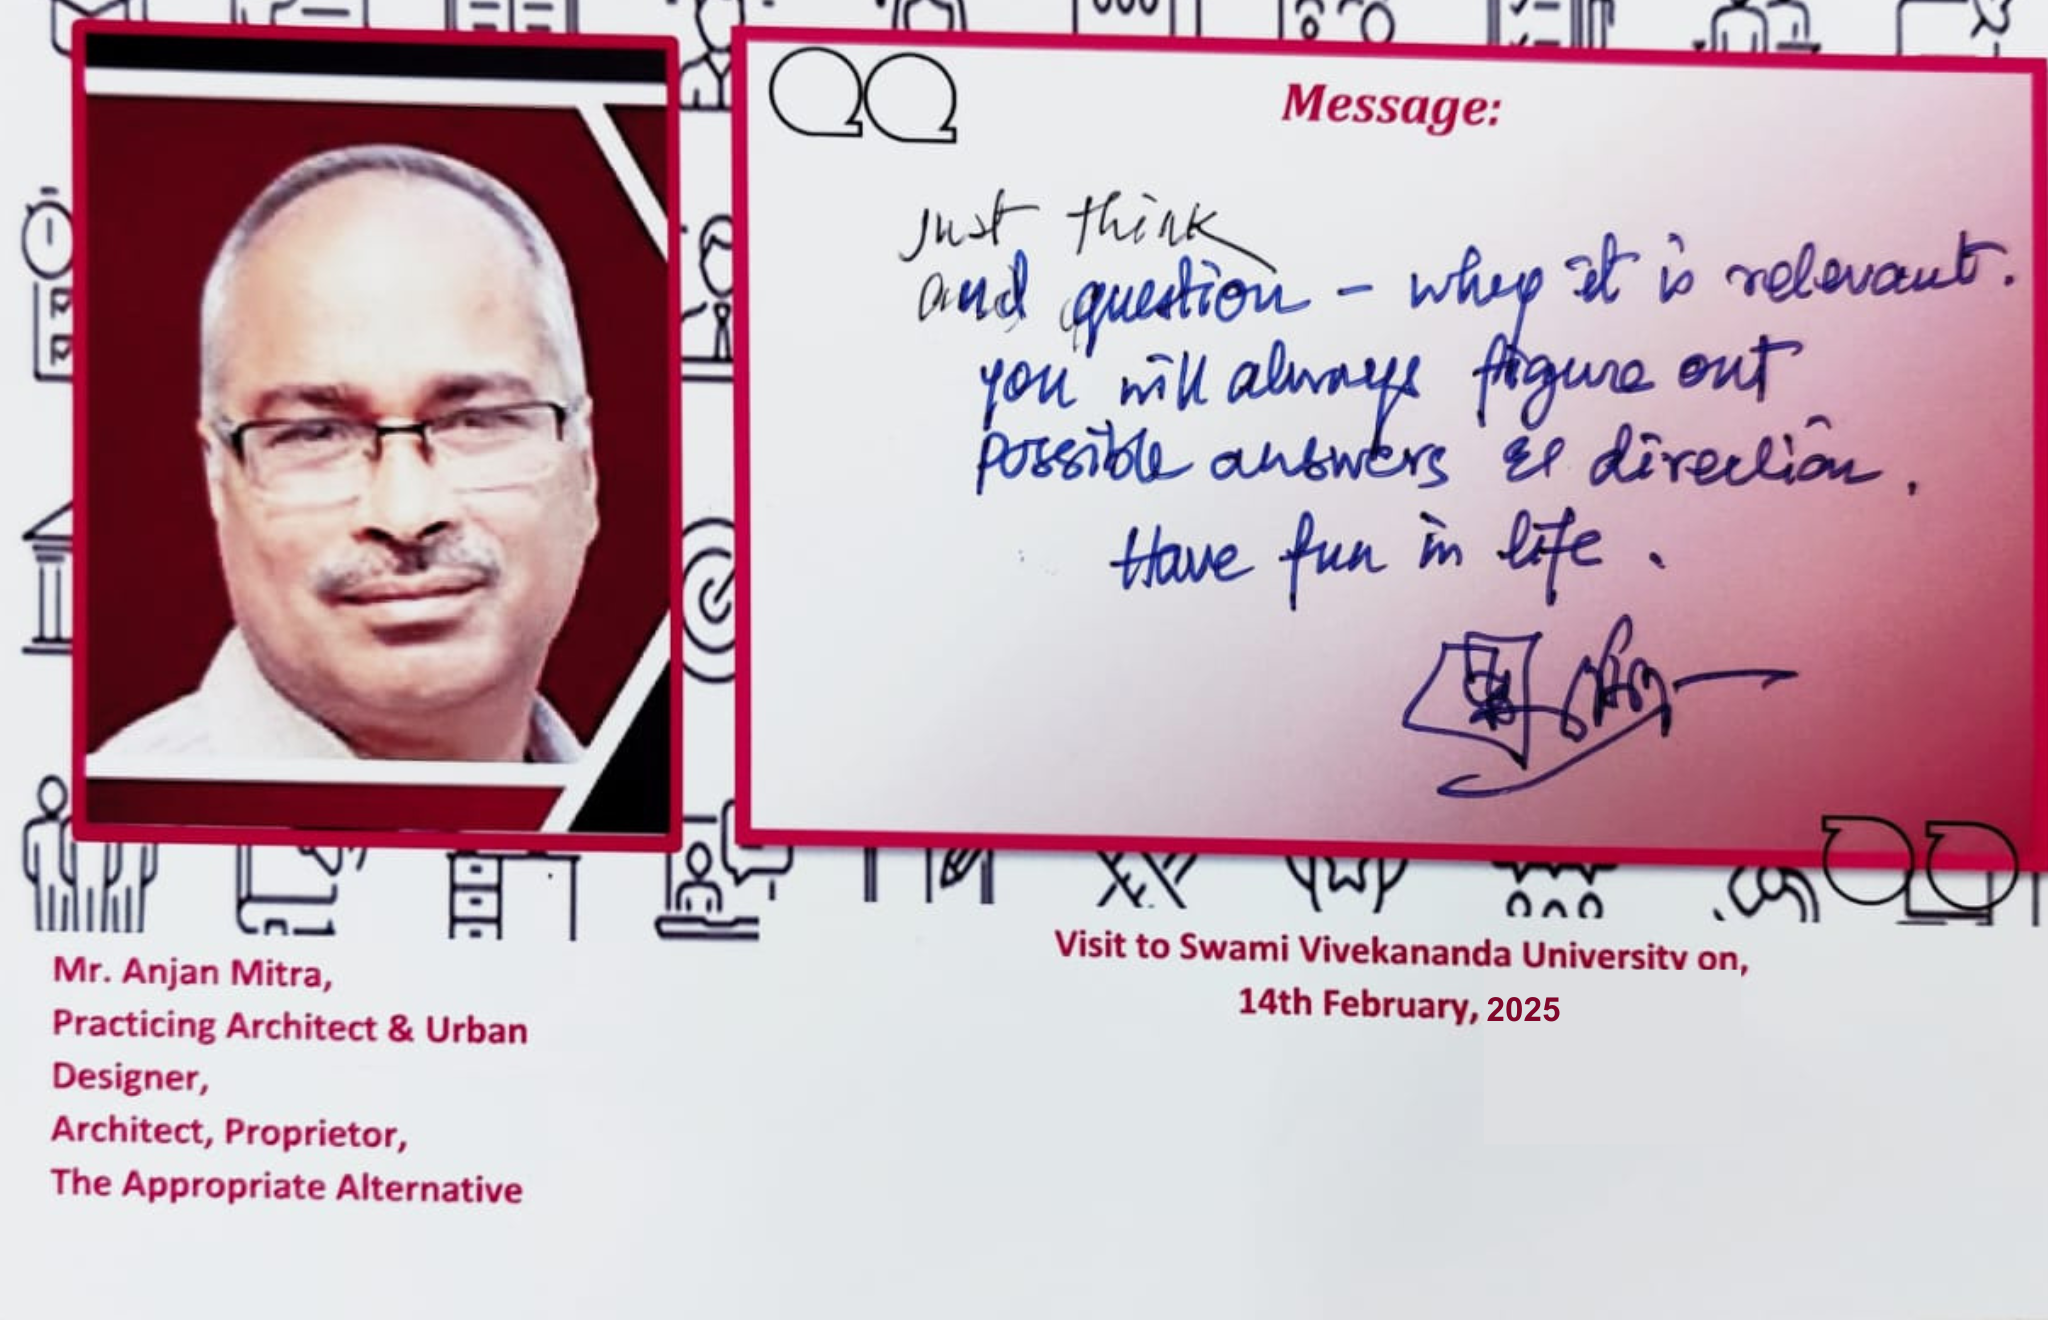 Message:
Just think
and question - why it is relevant.
you will always figure out
possible answers & direction.
Have fun in life.
Mr. Anjan Mitra,
Practicing Architect & Urban
Designer,
Architect, Proprietor,
The Appropriate Alternative
Visit to Swami Vivekananda University on,
14th February, 2025